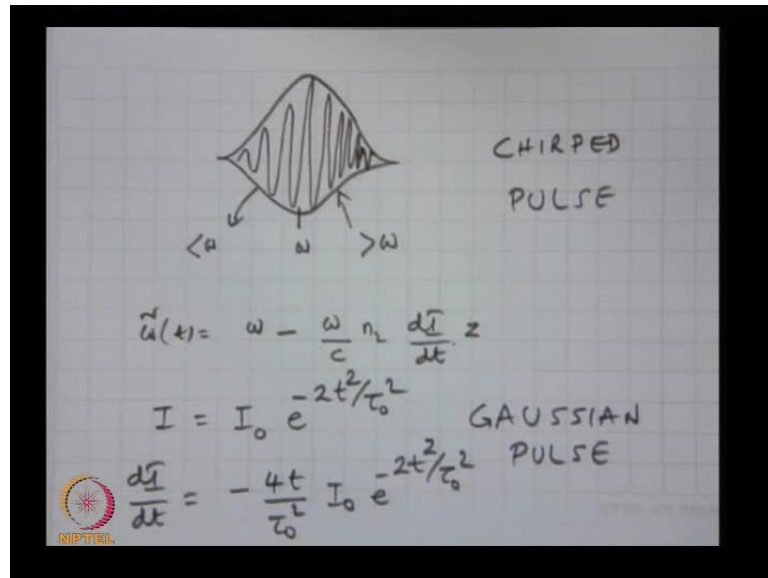 CHIRPED
PULSE
<ω ω >ω
ω̃(t) = ω - ω/c n₂ dI/dt z
I = I₀ e^(-2t²/τ₀²) GAUSSIAN
PULSE
dI/dt = - 4t/τ₀² I₀ e^(-2t²/τ₀²)
NPTEL